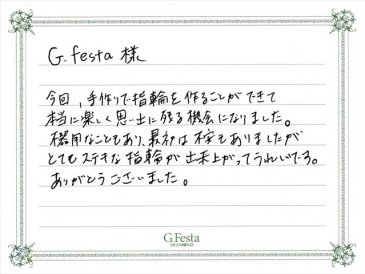 G.festa 様
今回、手作りで指輪を作ることができて
本当に楽しく思い出に残る機会になりました。
器用なこともあり、最初は不安もありましたが
とてもステキな指輪が出来上がってうれしいです。
ありがとうございました。
G.Festa
DIAMONDS